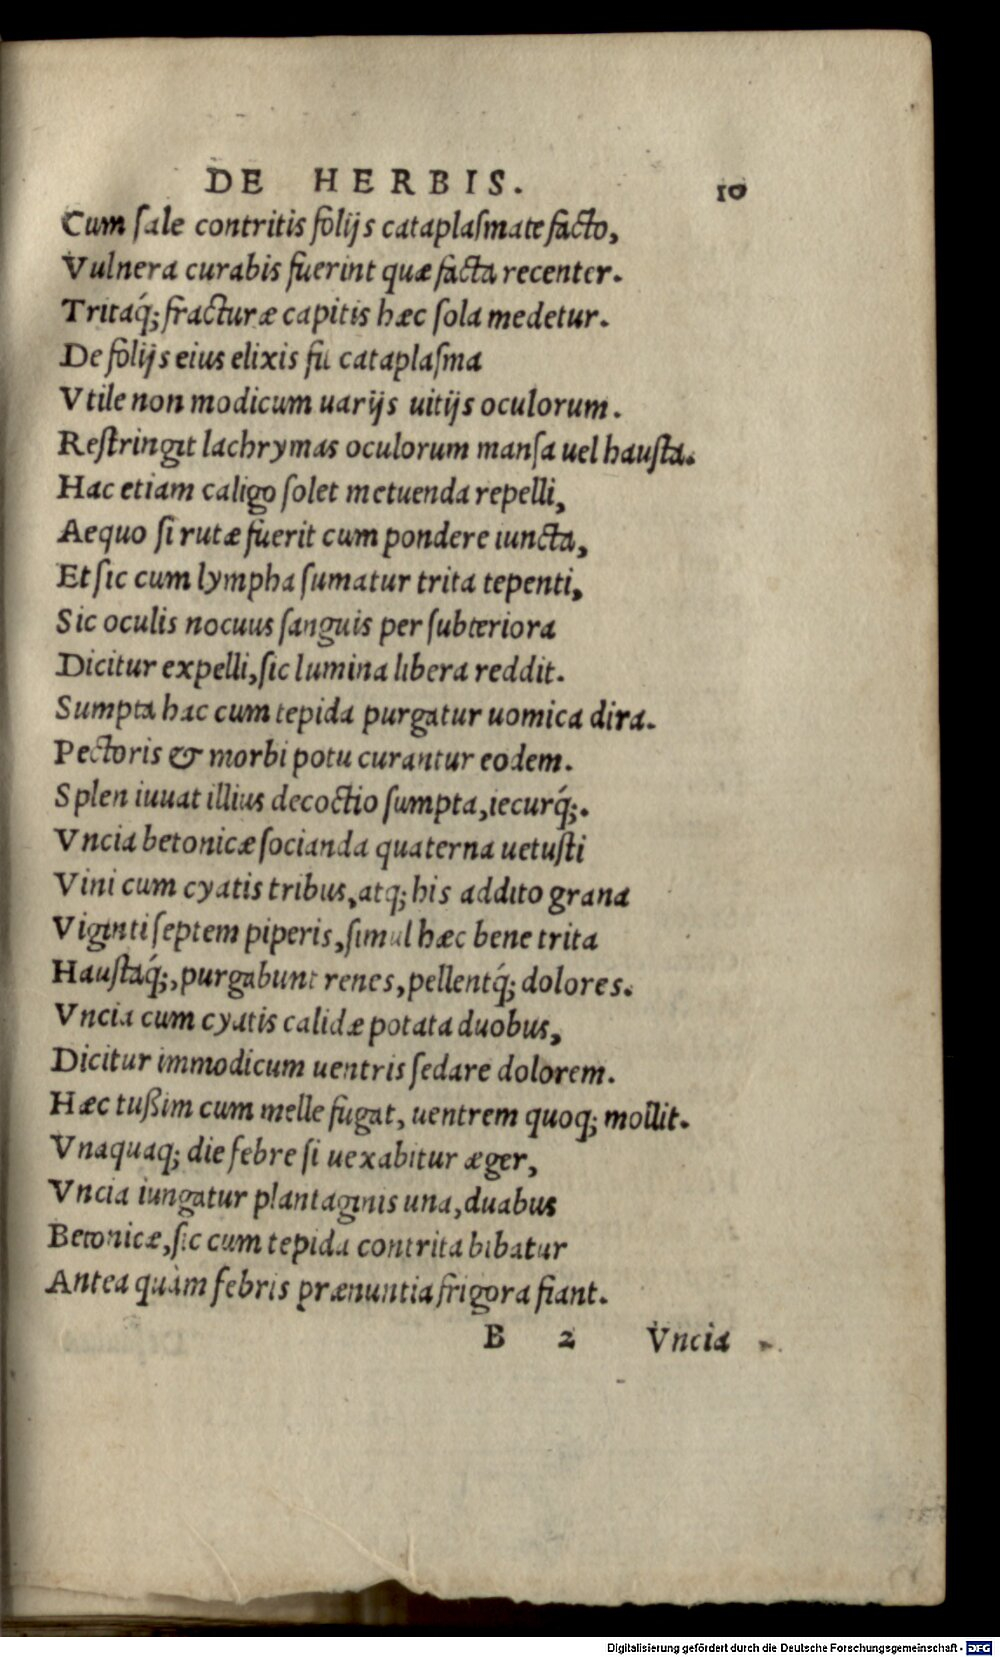 DE HERBIS. 10
Cum ſale contritis folijs cataplaſmate facto,
Vulnera curabis fuerint quæ facta recenter.
Tritaq́; fracturæ capitis hæc ſola medetur.
De folijs eius elixis fit cataplaſma
Vtile non modicum uarijs uitijs oculorum.
Reſtringit lachrymas oculorum manſa uel hauſta.
Hac etiam caligo ſolet metuenda repelli,
Aequo ſi rutæ fuerit cum pondere iuncta,
Et ſic cum lympha ſumatur trita tepenti,
Sic oculis nocuus ſanguis per ſubteriora
Dicitur expelli, ſic lumina libera reddit.
Sumpta hac cum tepida purgatur uomica dira.
Pectoris & morbi potu curantur eodem.
Splen iuuat illius decoctio ſumpta, iecurq́;.
Vncia betonicæ ſocianda quaterna uetuſti
Vini cum cyatis tribus, atq; his addito grana
Viginti ſeptem piperis, ſimul hæc bene trita
Hauſtaq́;, purgabunt renes, pellentq́; dolores.
Vncia cum cyatis calidæ potata duobus,
Dicitur immodicum uentris ſedare dolorem.
Hæc tußim cum melle fugat, uentrem quoq; mollit.
Vnaquaq; die febre ſi uexabitur æger,
Vncia iungatur plantaginis una, duabus
Betonicæ, ſic cum tepida contrita bibatur
Antea quàm febris prænuntia frigora fiant.
B 2 Vncia
Digitalisierung gefördert durch die Deutsche Forschungsgemeinschaft - DFG